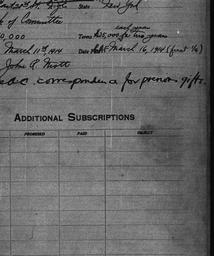 State New York
of Committee
each year
0,000 Terms $25,000 for two years
March 11th 1914 Date Paid March 16, 1914 (first 1/2)
John R. Mott
correspondence for previous gifts.
ADDITIONAL SUBSCRIPTIONS
PROMISED PAID OBJECT